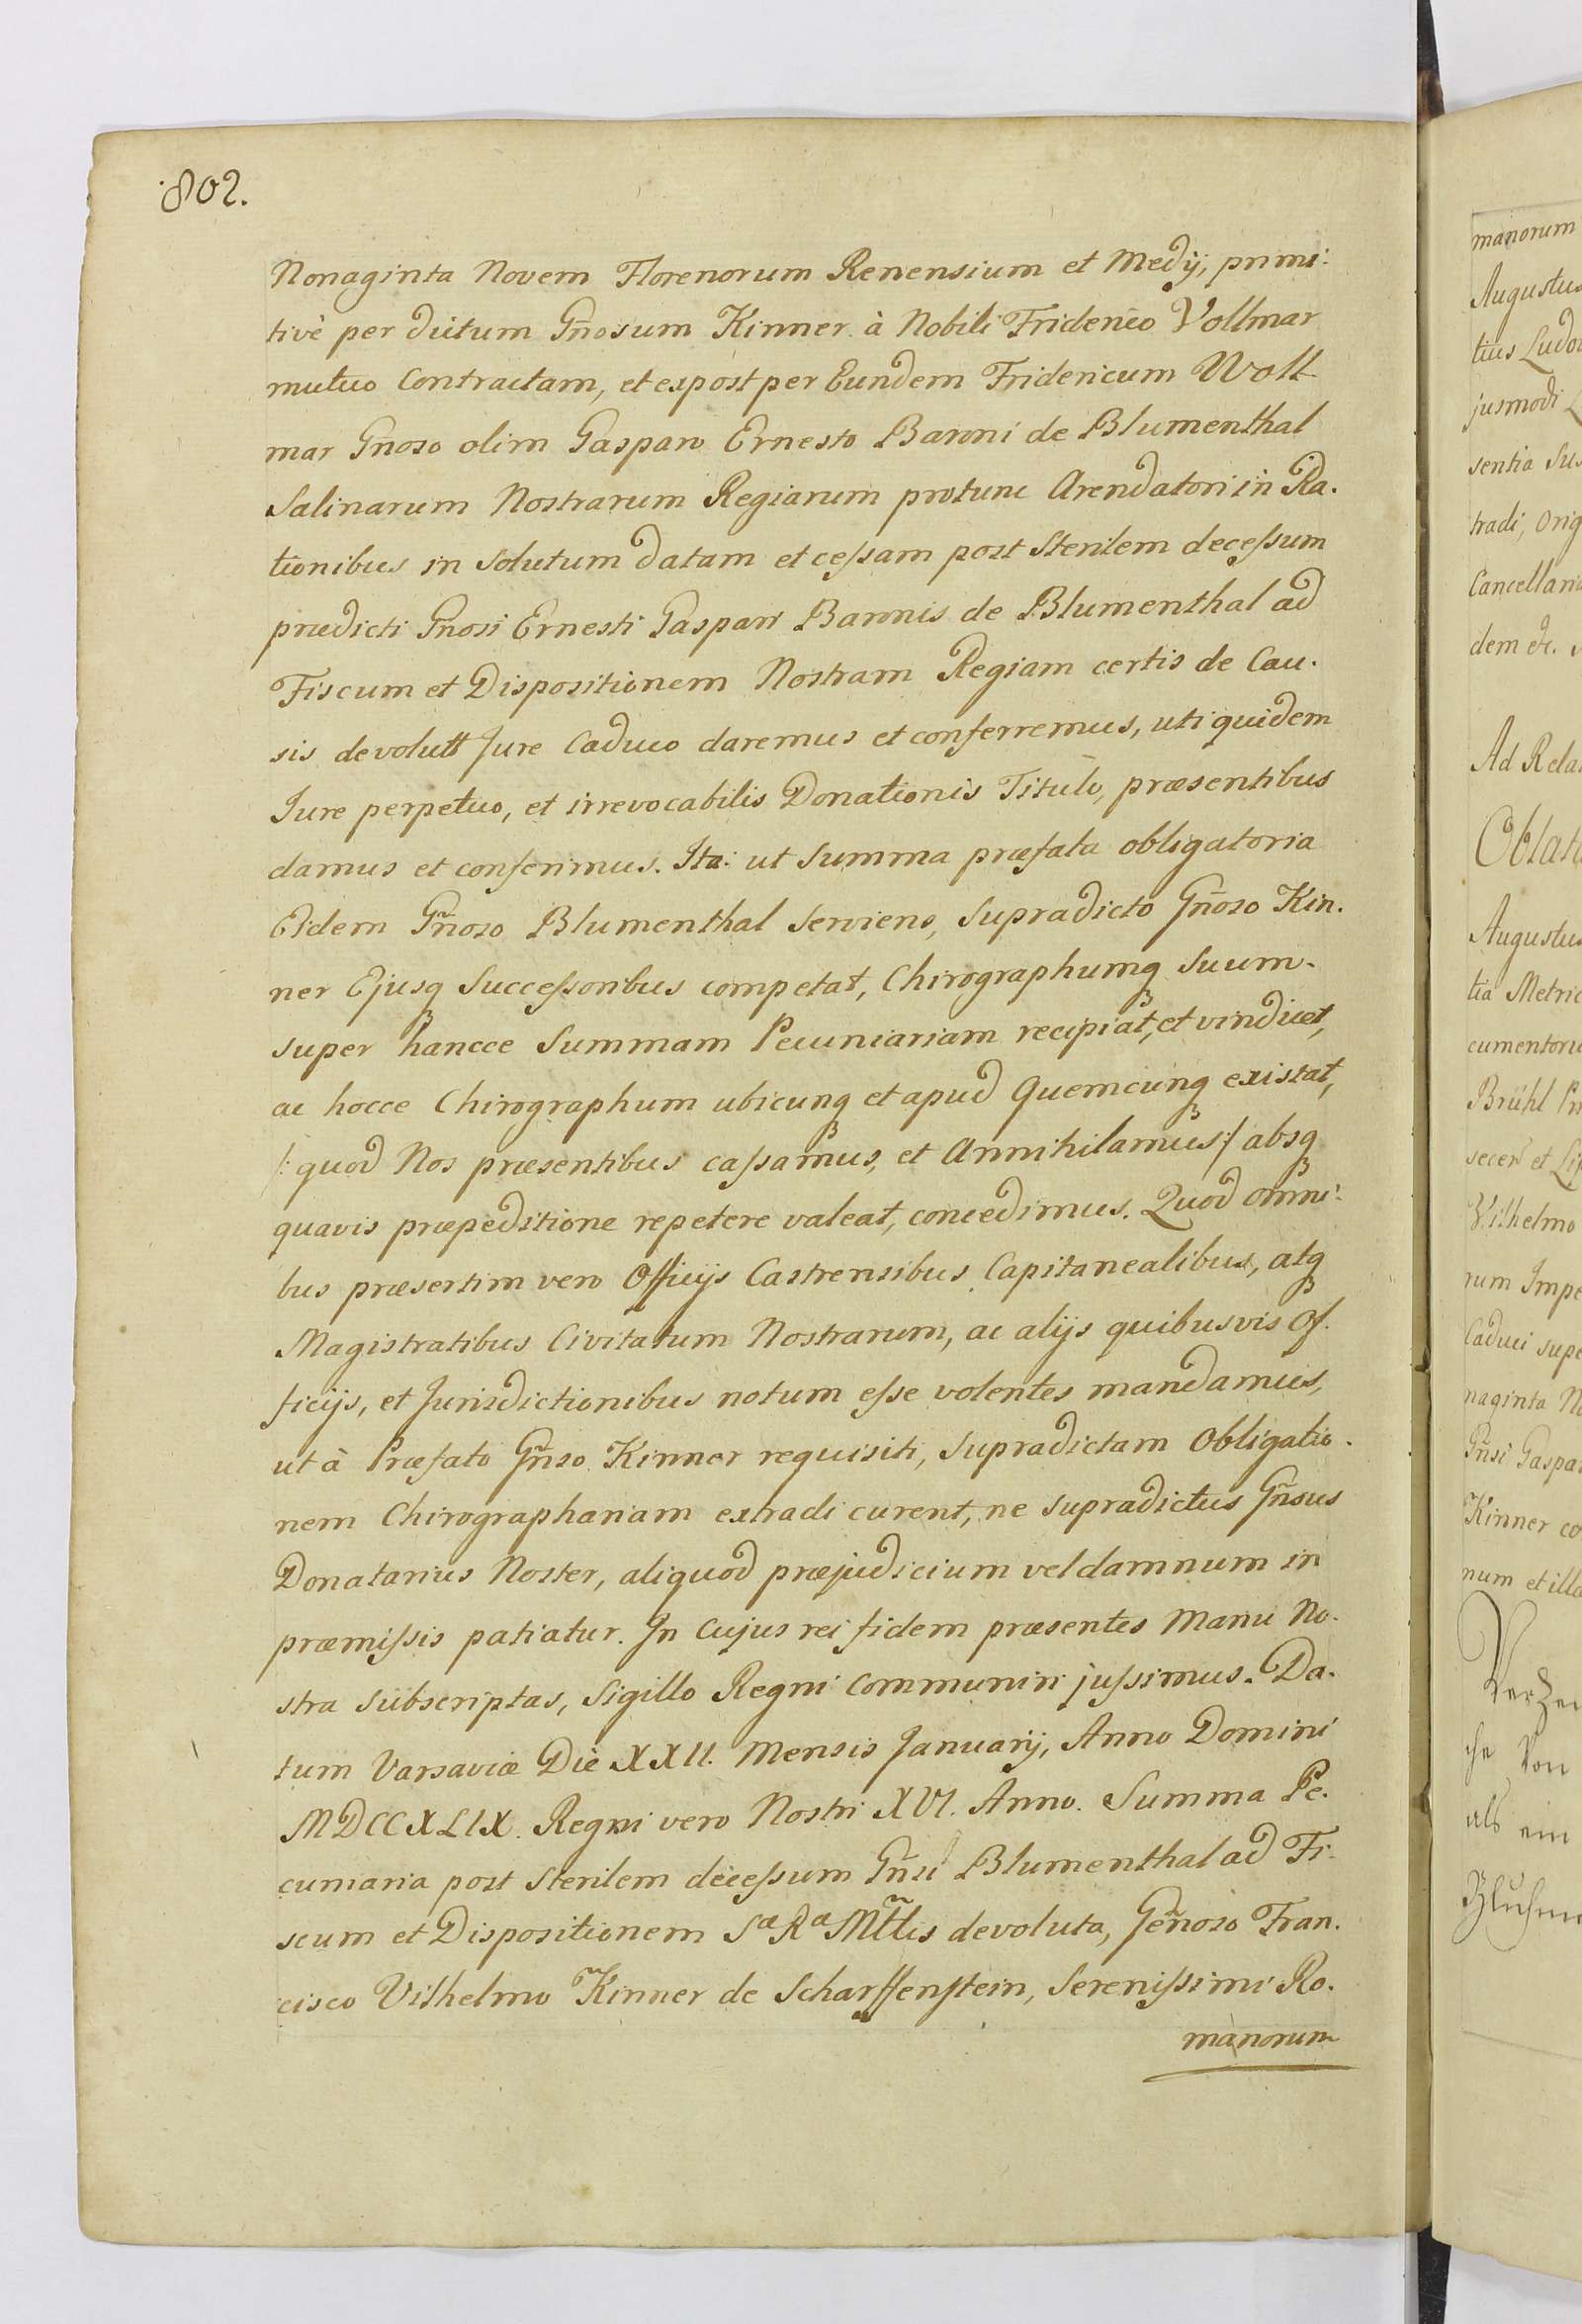 802.
Nonaginta Novem Florenorum Renensium et Medij, primi:
tivè per dictum Gñosum Kinner à Nobili Friderico Vollmar
mutuo Contractam, et expost per Eundem Fridericum Woll-
mar Gnoso olim Gasparo Ernesto Baroni de Blumenthal
Salinarum Nostrarum Regiarum protunc Arendatori in Ra.
tionibus in Solutum datam et ceſsam post Sterilem deceſsum
prædicti Gnosi Ernesti Gaspari Baronis de Blumenthal ad
Fiscum et Dispositionem Nostram Regiam certis de Cau.
sis devolutt Jure Caduco daremus et conferremus, uti quidem
Jure perpetuo, et irrevocabilis Donationis Titulo, præsentibus
damus et conferimus. Ita: ut Summa præfata obligatoria
Eidem Gñoso Blumenthal Serviens, Supradicto Gñoso Kin.
ner Ejusq Succeſsoribus competat, Chirographumq Suum.
super hancce Summam Pecuniariam recipiat, et vindicet,
ac hocce Chirographum ubicunq et apud Quemcunq existat,
/: quod Nos præsentibus caſsamus, et Annihilamus :/ absq
quavis præpeditione repetere valeat, concedimus. Quod omni:
bus præsertim vero Officijs Castrensibus Capitanealibus, atq
Magistratibus Civitatum Nostrarum, ac alijs quibusvis Of.
ficijs, et Jurisdictionibus notum eſse volentes mandamus,
ut à Præfato Gñso Kinner requisiti, Supradictam Obligatio.
nem Chirographariam extradi curent, ne supradictus Gñsus
Donatarius Noster, aliquod præjudicium vel damnum in
præmiſsis patiatur. In Cujus rei fidem præsentes Manu No.
stra Subscriptas, Sigillo Regni Communiri juſsimus. Da.
tum Varsaviæ Die XXII. Mensis Januarij, Anno Domini
MDCCXLIX. Regni vero Nostri XVI. Anno. Summa Pe.
cuniaria post Sterilem deceſsum Gñsi Blumenthal ad Fi.
scum et Dispositionem Sª Rª Mttis devoluta, Geñoso Fran.
cisco Vilhelmo Kinner de Scharffenſtein, Sereniſsimi Ro.
manorum
manorum
Augustus
tius Ludov
jusmodi
sentia Sus
tradi, Orig
Cancellaria
dem &c.
Ad Rela
Oblat
Augustus
tia Metric
cumentoru
Brühl
secen et Lip
Vilhelmo
rum Impe
Caduci supe
naginta No
Gñsi Gaspar
Kinner co
num et illa
Von
als ein